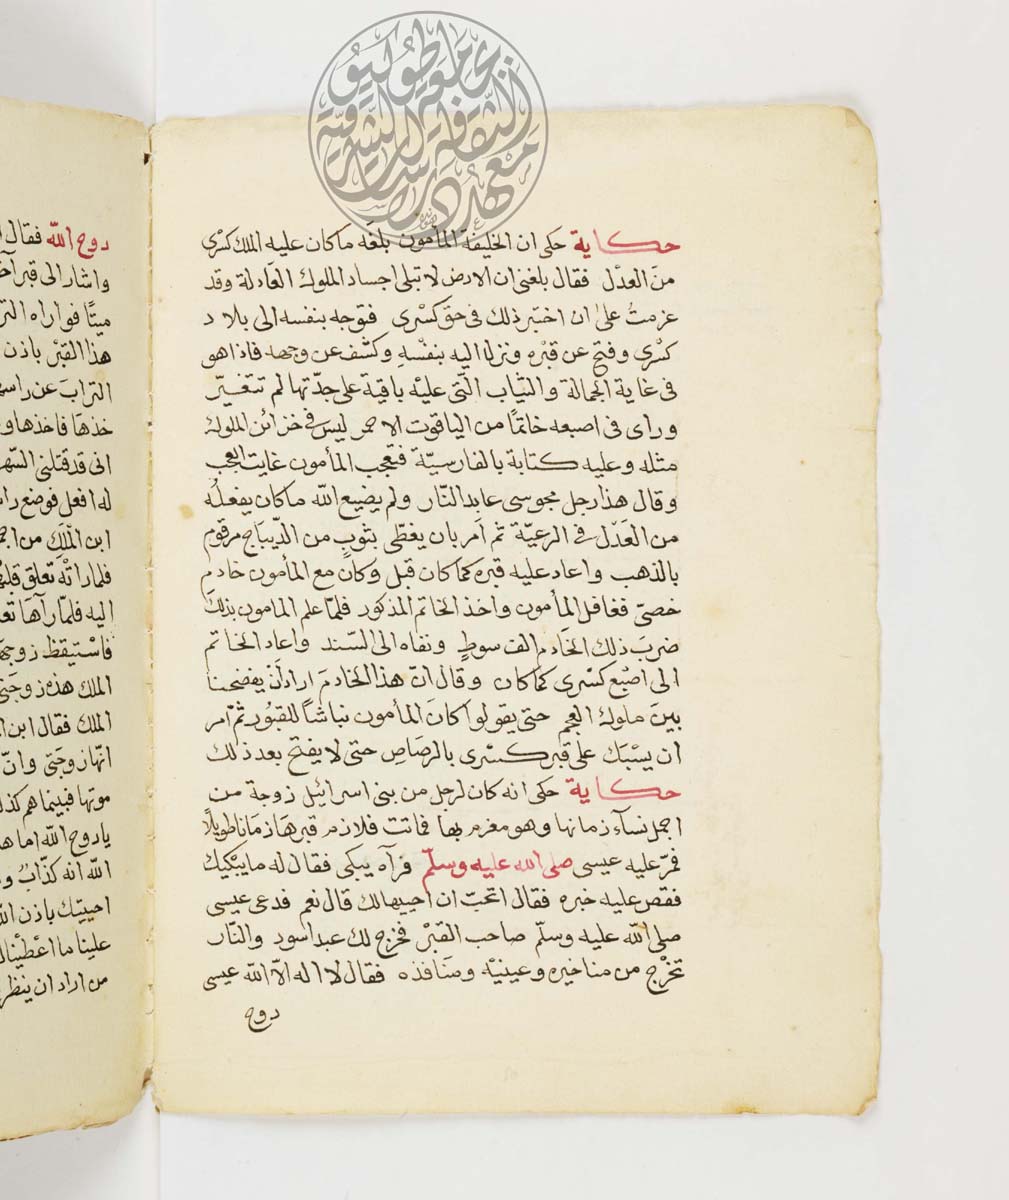 حكاية حكى ان الخليفة المأمون بلغه ما كان عليه الملك كسرى
من العدل فقال بلغنى ان الارض لا تبلى اجساد الملوك العادلة وقد
عزمت على ان اختبر ذلك فى حق كسرى فتوجه بنفسه الى بلاد
كسرى وفتح عن قبره ونزل اليه بنفسه وكشف عن وجهه فاذا هو
فى غاية الجمالة والثياب التى عليه باقية على جدّتها لم تتغيّر
وراى فى اصبعه خاتمًا من الياقوت الاحمر ليس فى خزائن الملوك
مثله وعليه كتابة بالفارسيّة فتعجب المأمون غايت العجب
وقال هذا رجل مجوسى عابد النّار ولم يضيع الله ما كان يفعله
من العدل فى الرعيّة ثم أمر بان يغطّى بثوب من الدّيباج مرقوم
بالذهب واعاد عليه قبره كما كان قبل وكان مع المأمون خادم
خصىّ فغافل المأمون واخذ الخاتم المذكور فلمّا علم المامون بذلك
ضرب ذلك الخادم الف سوط ونفاه الى السّند واعاد الخاتم
الى اصبع كسرى كما كان وقال انّ هذا الخادم اراد ان يفضحنا
بين ملوك العجم حتى يقولوا كان المأمون نباشًا للقبور ثم أمر
ان يسبك على قبر كسرى بالرصاص حتى لا يفتح بعد ذلك
حكاية حكى انه كان لرجل من بنى اسرائيل زوجة من
اجمل نسآء زمانها وهو مغرم بها فماتت فلازم قبرها زمانا طويلًا
فمرّ عليه عيسى صلى الله عليه وسلّم فرآه يبكى فقال له ما يبكيك
فقص عليه خبره فقال اتحبّ ان احييها لك قال نعم فدعى عيسى
صلى الله عليه وسلّم صاحب القبر فخرج لك عبد اسود والنّار
تخرج من مناخيره وعينيه ومنافذه فقال لا اله الاّ الله عيسى
روح
روح الله فقال
واشار الى قبر
ميتًا فواراه
هذا القبر باذن
التراب عن
خذها فاخذها
انى قد قتلنى
له افعل فوضع
ابن الملك من
فلما راته تعلق
اليه فلمّا رآها
فاستيقظ
الملك هذه
الملك فقال ابن
انّها زوجتى وانّ
موتها فبينما هم
يا روح الله اما
الله انه كذّاب
احييتك باذن
علينا ما
من اراد ان ينظر
جامعة طوكيو
معهد دراسات الثقافة الشرقية